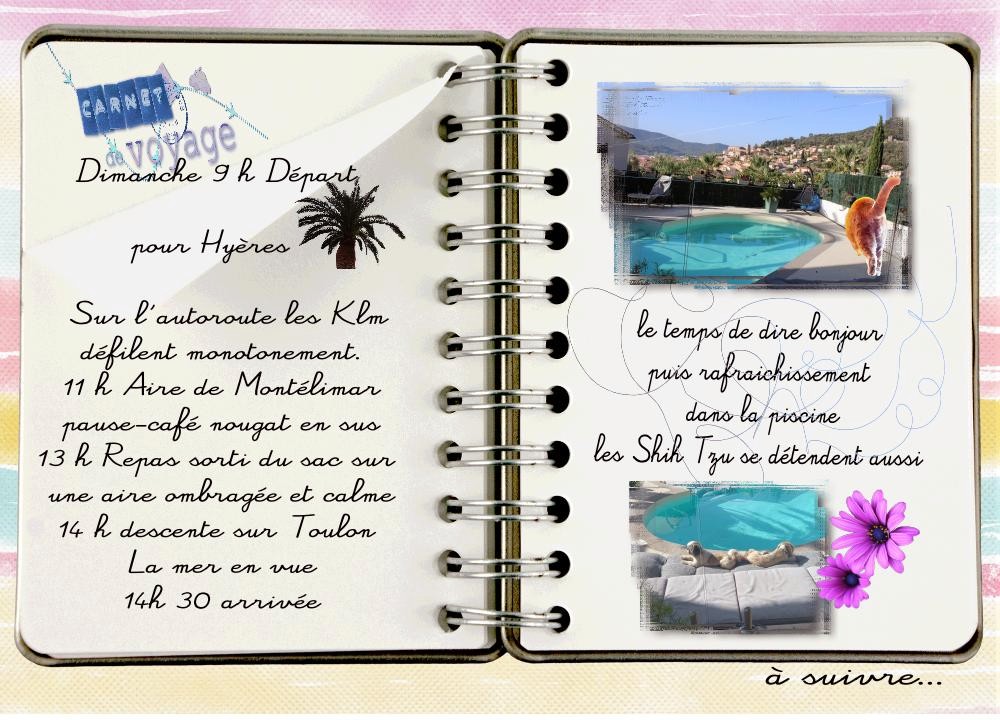 CARNET
de voyage
Dimanche 9 h Départ
pour Hyères
Sur l'autoroute les Klm
défilent monotonement.
11 h Aire de Montélimar
pause-café nougat en sus
13 h Repas sorti du sac sur
une aire ombragée et calme
14 h descente sur Toulon
La mer en vue
14h 30 arrivée
le temps de dire bonjour
puis rafraichissement
dans la piscine
les Shih Tzu se détendent aussi
à suivre...